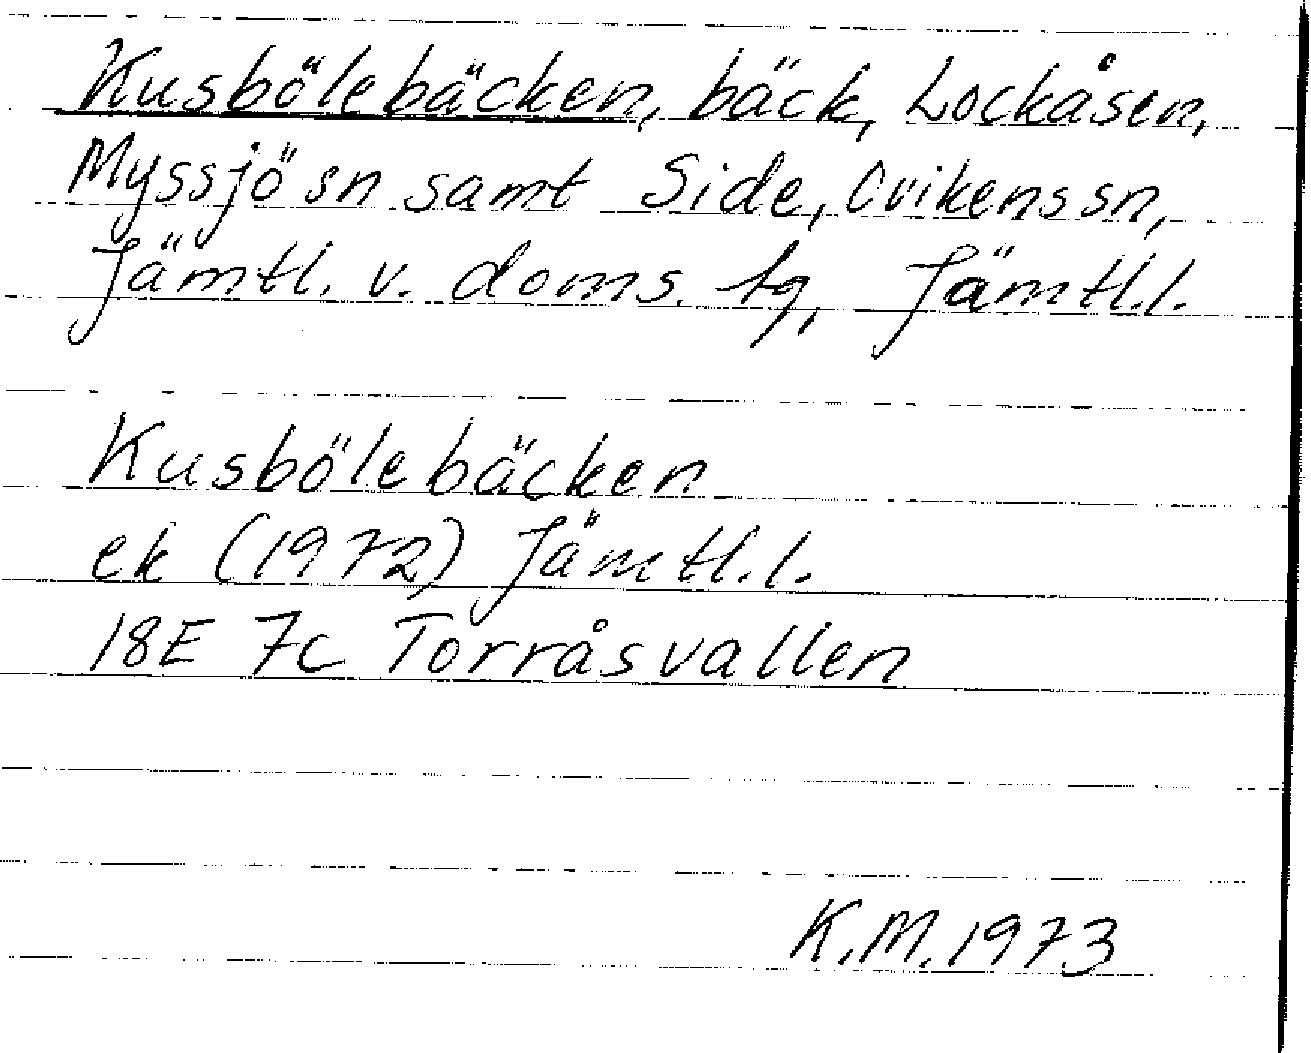 Kusbölebäcken, bäck, Lockåsen,
Myssjö sn samt Side, Ovikens sn,
Jämtl. v. doms. tg, Jämtl. l.
Kusbölebäcken
ek (1972) Jämtl. l.
18E 7c Torråsvallen
K.M. 1973